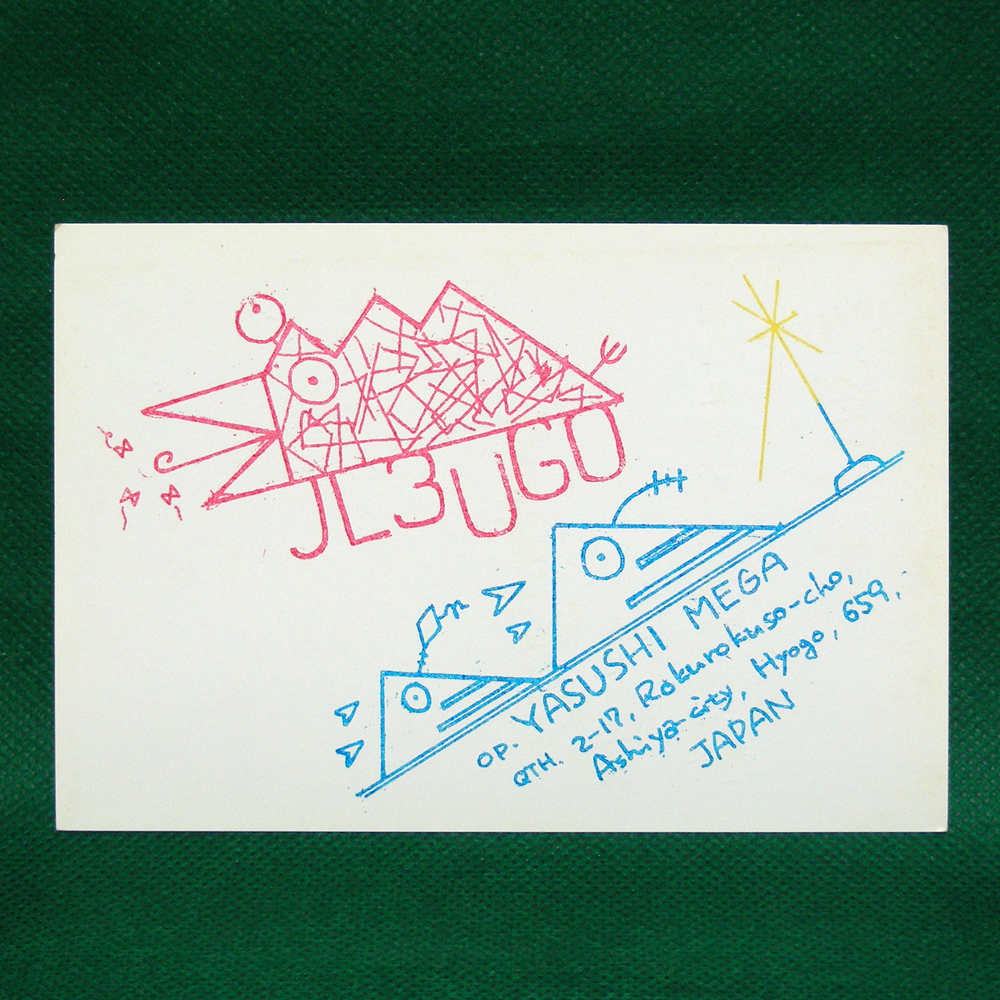 JL3UGO
OP. YASUSHI MEGA
QTH. 2-17, Rokurokuso-cho,
Ashiya-city, Hyogo, 659,
JAPAN